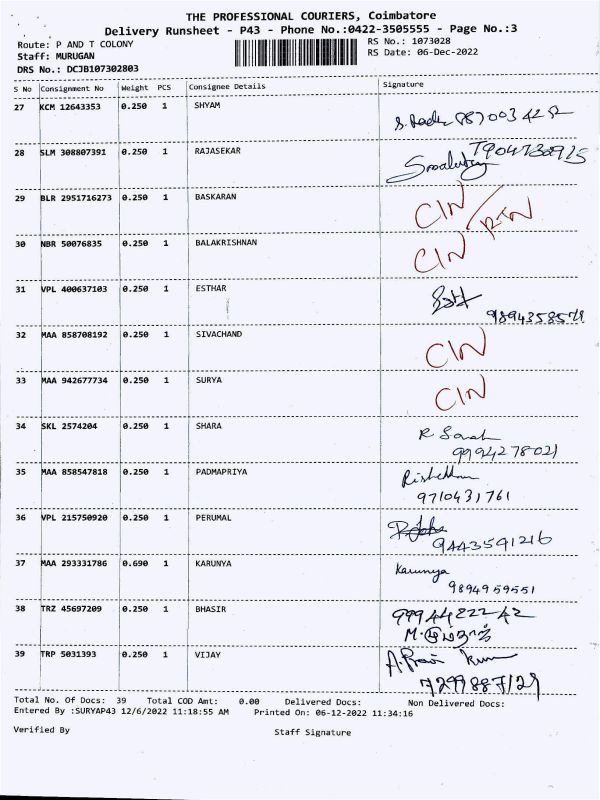 THE PROFESSIONAL COURIERS, Coimbatore
Delivery Runsheet - P43 - Phone No.:0422-3505555 - Page No.:3
Route: P AND T COLONY RS No.: 1073028
Staff: MURUGAN RS Date: 06-Dec-2022
DRS No.: DCJB107302803
S No Consignment No Weight PCS Consignee Details Signature
27 KCM 12643353 0.250 1 SHYAM
28 SLM 308807391 0.250 1 RAJASEKAR
29 BLR 2951716273 0.250 1 BASKARAN CIN
30 NBR 50076835 0.250 1 BALAKRISHNAN CIN
31 VPL 400637103 0.250 1 ESTHAR
32 MAA 858708192 0.250 1 SIVACHAND CIN
33 MAA 942677734 0.250 1 SURYA CIN
34 SKL 2574204 0.250 1 SHARA
9994278021
35 MAA 858547818 0.250 1 PADMAPRIYA
9710431761
36 VPL 215750920 0.250 1 PERUMAL
9443591216
37 MAA 293331786 0.690 1 KARUNYA Karunya
9894959551
38 TRZ 45697209 0.250 1 BHASIR 9994422242
39 TRP 5031393 0.250 1 VIJAY
7299887129
Total No. Of Docs: 39 Total COD Amt: 0.00 Delivered Docs: Non Delivered Docs:
Entered By :SURYAP43 12/6/2022 11:18:55 AM Printed On: 06-12-2022 11:34:16
Verified By Staff Signature